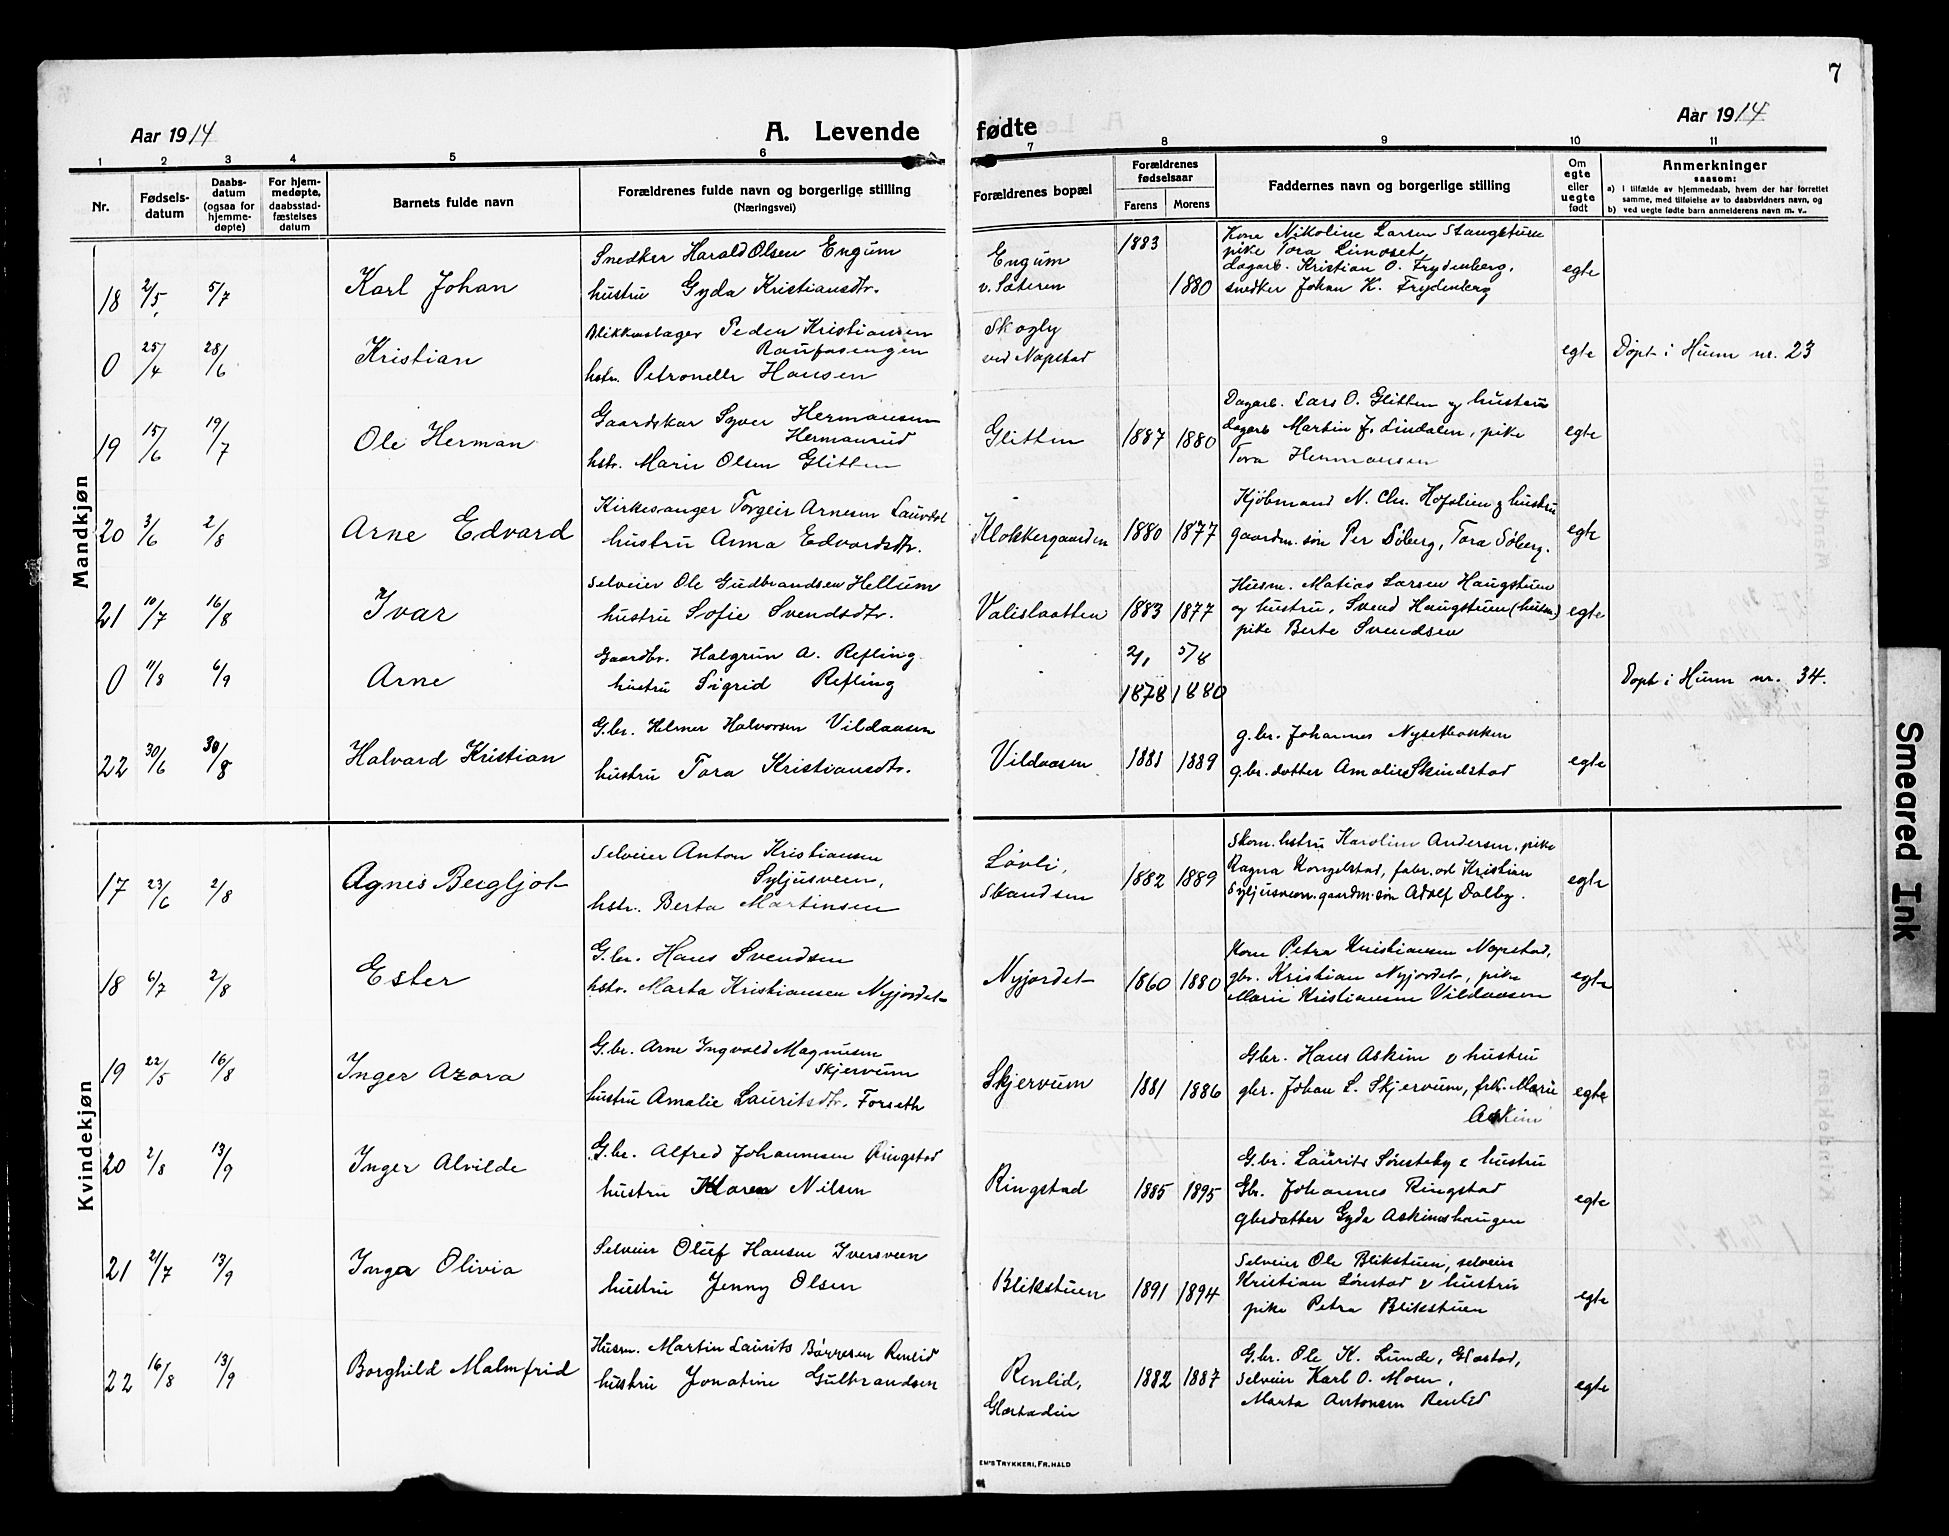 7
Aar 1914
A. Levende
fødte
Aar 1914
1 2 3 4 5 6 7 8 9 10 11
Nr.
Fødsels-
datum
Daabs-
datum
(ogsaa for
hjemme-
døpte)
For hjem-
medøpte,
daabsstad-
fæstelses
datum
Barnets fulde navn
Forældrenes fulde navn og borgerlige stilling
(Næringsvei)
Forældrenes bopæl
Forældrenes
fødselsaar
Farens
Morens
Faddernes navn og borgerlige stilling
Om
egte
eller
uegte
født
Anmerkninger
saasom:
a) i tilfælde av hjemmedaab, hvem der har forrettet
samme, med tilføielse av to daabsvidners navn, og
b) ved uegte fødte barn anmelderens navn m. v..
Mandkjøn
18 2/5 5/7 Karl Johan
Snedker Harald Olsen Engum
hustru Gyda Kristiansdtr.
Engum
v. Sæteren
1883 1880
Kone Nikoline Larsen Stangstuen
pike Tora Limoset,
dagarb. Kristian O. Frydenberg,
snedker Johan K. Frydenberg
egte
0 25/4 28/6 Kristian
Blikkenslager Peder Kristiansen
Raufossengen
hstr. Petronelle Hansen
Skogly
ved Næpstad
egte Døpt i Hunn nr. 23
19 15/6 19/7 Ole Herman
Gaardskar Syver Hermansen
Hermanrud
hstr. Marie Olsen Glitten
Glitten
1887 1880
Dagarb. Lars O. Glitten og hustru
dagarb Martin J. Lindalen, pike
Tora Hermansen
egte
20 3/6 2/8 Arne Edvard
Kirkesanger Torgeir Arnesen Lauvdal
hustru Anna Edvardsdtr.
Klokkergaarden
1880 1877
Kjøbmand N. Chr. Hofslien & hustru
gaardm. søn Per Søberg, Tora Søberg.
egte
21 10/7 16/8 Ivar
Selveier Ole Gudbrandsen Hellum
hustru Sofie Svendsdtr.
Valislaatten
1883 1877
Husm. Matias Larsen Haugstuen
og hustru, Svend Haugstuen (husm)
pike Berte Svendsen
egte
0 11/8 6/9 Arne
Gaardbr. Halgrim A. Refling
hustru Sigrid Refling
2/1 1878 5/8 1880
Døpt i Hunn nr. 34.
22 30/6 30/8 Halvard Kristian
G.br. Helmer Halvorsen Vildaasen
hustru Tora Kristiansdtr.
Vildaasen
1881 1889
g.br. Johannes Nysetbakken
g.br. datter Amalie Skindstad
egte
Kvindekjøn
17 23/6 2/8 Agnes Bergljot
Selveier Anton Kristiansen
Syljusveen,
hstr. Berta Martinsen
Løvli,
Skandsen
1882 1889
Skom. hstru Karoline Andersen, pike
Ragna Kongelstad, fabr.arb Kristian
Syljusveen. gaardm. søn Adolf Dalby.
egte
18 6/7 2/8 Ester
G.br. Hans Svendsen
hstr. Marta Kristiansen Nyjordet
Nyjordet
1860 1880
Kone Petra Kristiansen Næpstad,
gbr. Kristian Nyjordet, pike
Marie Kristiansen Vildaasen
egte
19 22/5 16/8 Inger Azora
G.br. Arne Ingvald Magnusen
Skjervum
hustru Amalie Lauritsdtr. Forseth
Skjervum
1881 1886
Gbr. Hans Askim & hustru
gbr. Johan L. Skjervum, frk. Marie
Askim
egte
20 2/8 13/9 Inger Alvilde
G.br. Alfred Johannesen Ringstad
hustru Karen Nilsen
Ringstad
1885 1895
G.br. Laurits Sønsteby & hustru
Gbr. Johannes Ringstad
gbrdatter Gyda Askimshaugen
egte
21 21/7 13/9 Inga Olivia
Selveier Oluf Hansen Iversveen
hustru Jenny Olsen
Blikstuen
1891 1894
Selveier Ole Blikstuen, selveier
Kristian Lønstad & hustru
pike Petra Blikstuen
egte
22 16/8 13/9 Borghild Malmfrid
Husm. Martin Laurits Børresen Renlid
hustru Jonatine Gulbrandsen
Renlid,
Glæstadeie
1882 1887
G.br. Ole K. Lunde, Glæstad,
Selveier Karl O. Moen,
Marta Antonsen Renlid
egte
EM'S TRYKKERI, FR. HALD
Smeared Ink